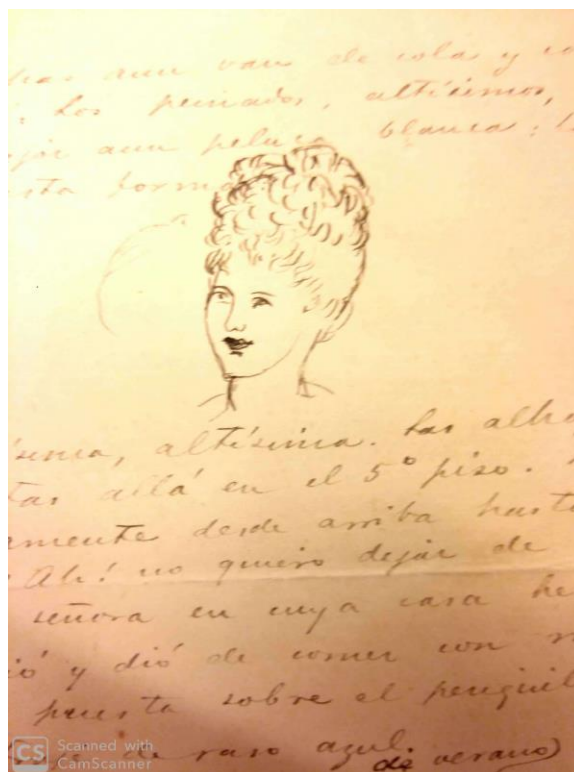 aun van de cola y
Los peinados, altísimos,
aun peluca blanca;
sta forma
sima, altísima. Las alha
tas allá en el 5º piso.
amente desde arriba hasta
Ah! no quiero dejar de
señora en cuya casa he
ió y dió de comer con
puesta sobre el
de raso azul.
de verano)
CS Scanned with
CamScanner